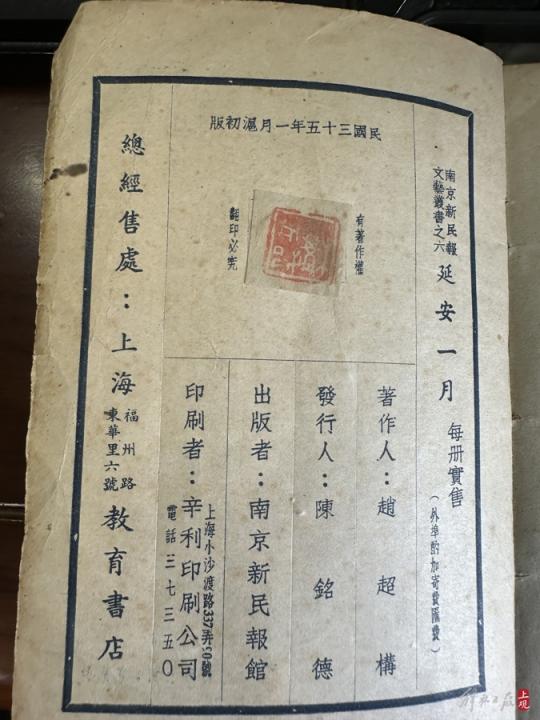 民國三十五年一月滬初版
南京新民報
文藝叢書之六
延安一月
每册實售
（外埠酌加寄費匯費）
有著作權
翻印必究
著作人：趙超構
發行人：陳銘德
出版者：南京新民報館
印刷者：辛利印刷公司
上海小沙渡路337弄50號
電話三七三五〇
總經售處：上海
福州路
東華里六號
教育書店
解放日報
上观